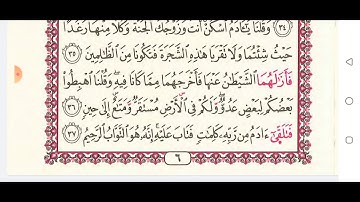 ٣٤ وَقُلْنَا يَٰٓـَٔادَمُ ٱسْكُنْ أَنتَ وَزَوْجُكَ ٱلْجَنَّةَ وَكُلَا مِنْهَا رَغَدًا
حَيْثُ شِئْتُمَا وَلَا تَقْرَبَا هَٰذِهِ ٱلشَّجَرَةَ فَتَكُونَا مِنَ ٱلظَّٰلِمِينَ ٣٥
فَأَزَلَّهُمَا ٱلشَّيْطَٰنُ عَنْهَا فَأَخْرَجَهُمَا مِمَّا كَانَا فِيهِ وَقُلْنَا ٱهْبِطُوا۟
بَعْضُكُمْ لِبَعْضٍ عَدُوٌّ وَلَكُمْ فِى ٱلْأَرْضِ مُسْتَقَرٌّ وَمَتَٰعٌ إِلَىٰ حِينٍ ٣٦
فَتَلَقَّىٰٓ ءَادَمُ مِن رَّبِّهِۦ كَلِمَٰتٍ فَتَابَ عَلَيْهِ إِنَّهُۥ هُوَ ٱلتَّوَّابُ ٱلرَّحِيمُ ٣٧
٦